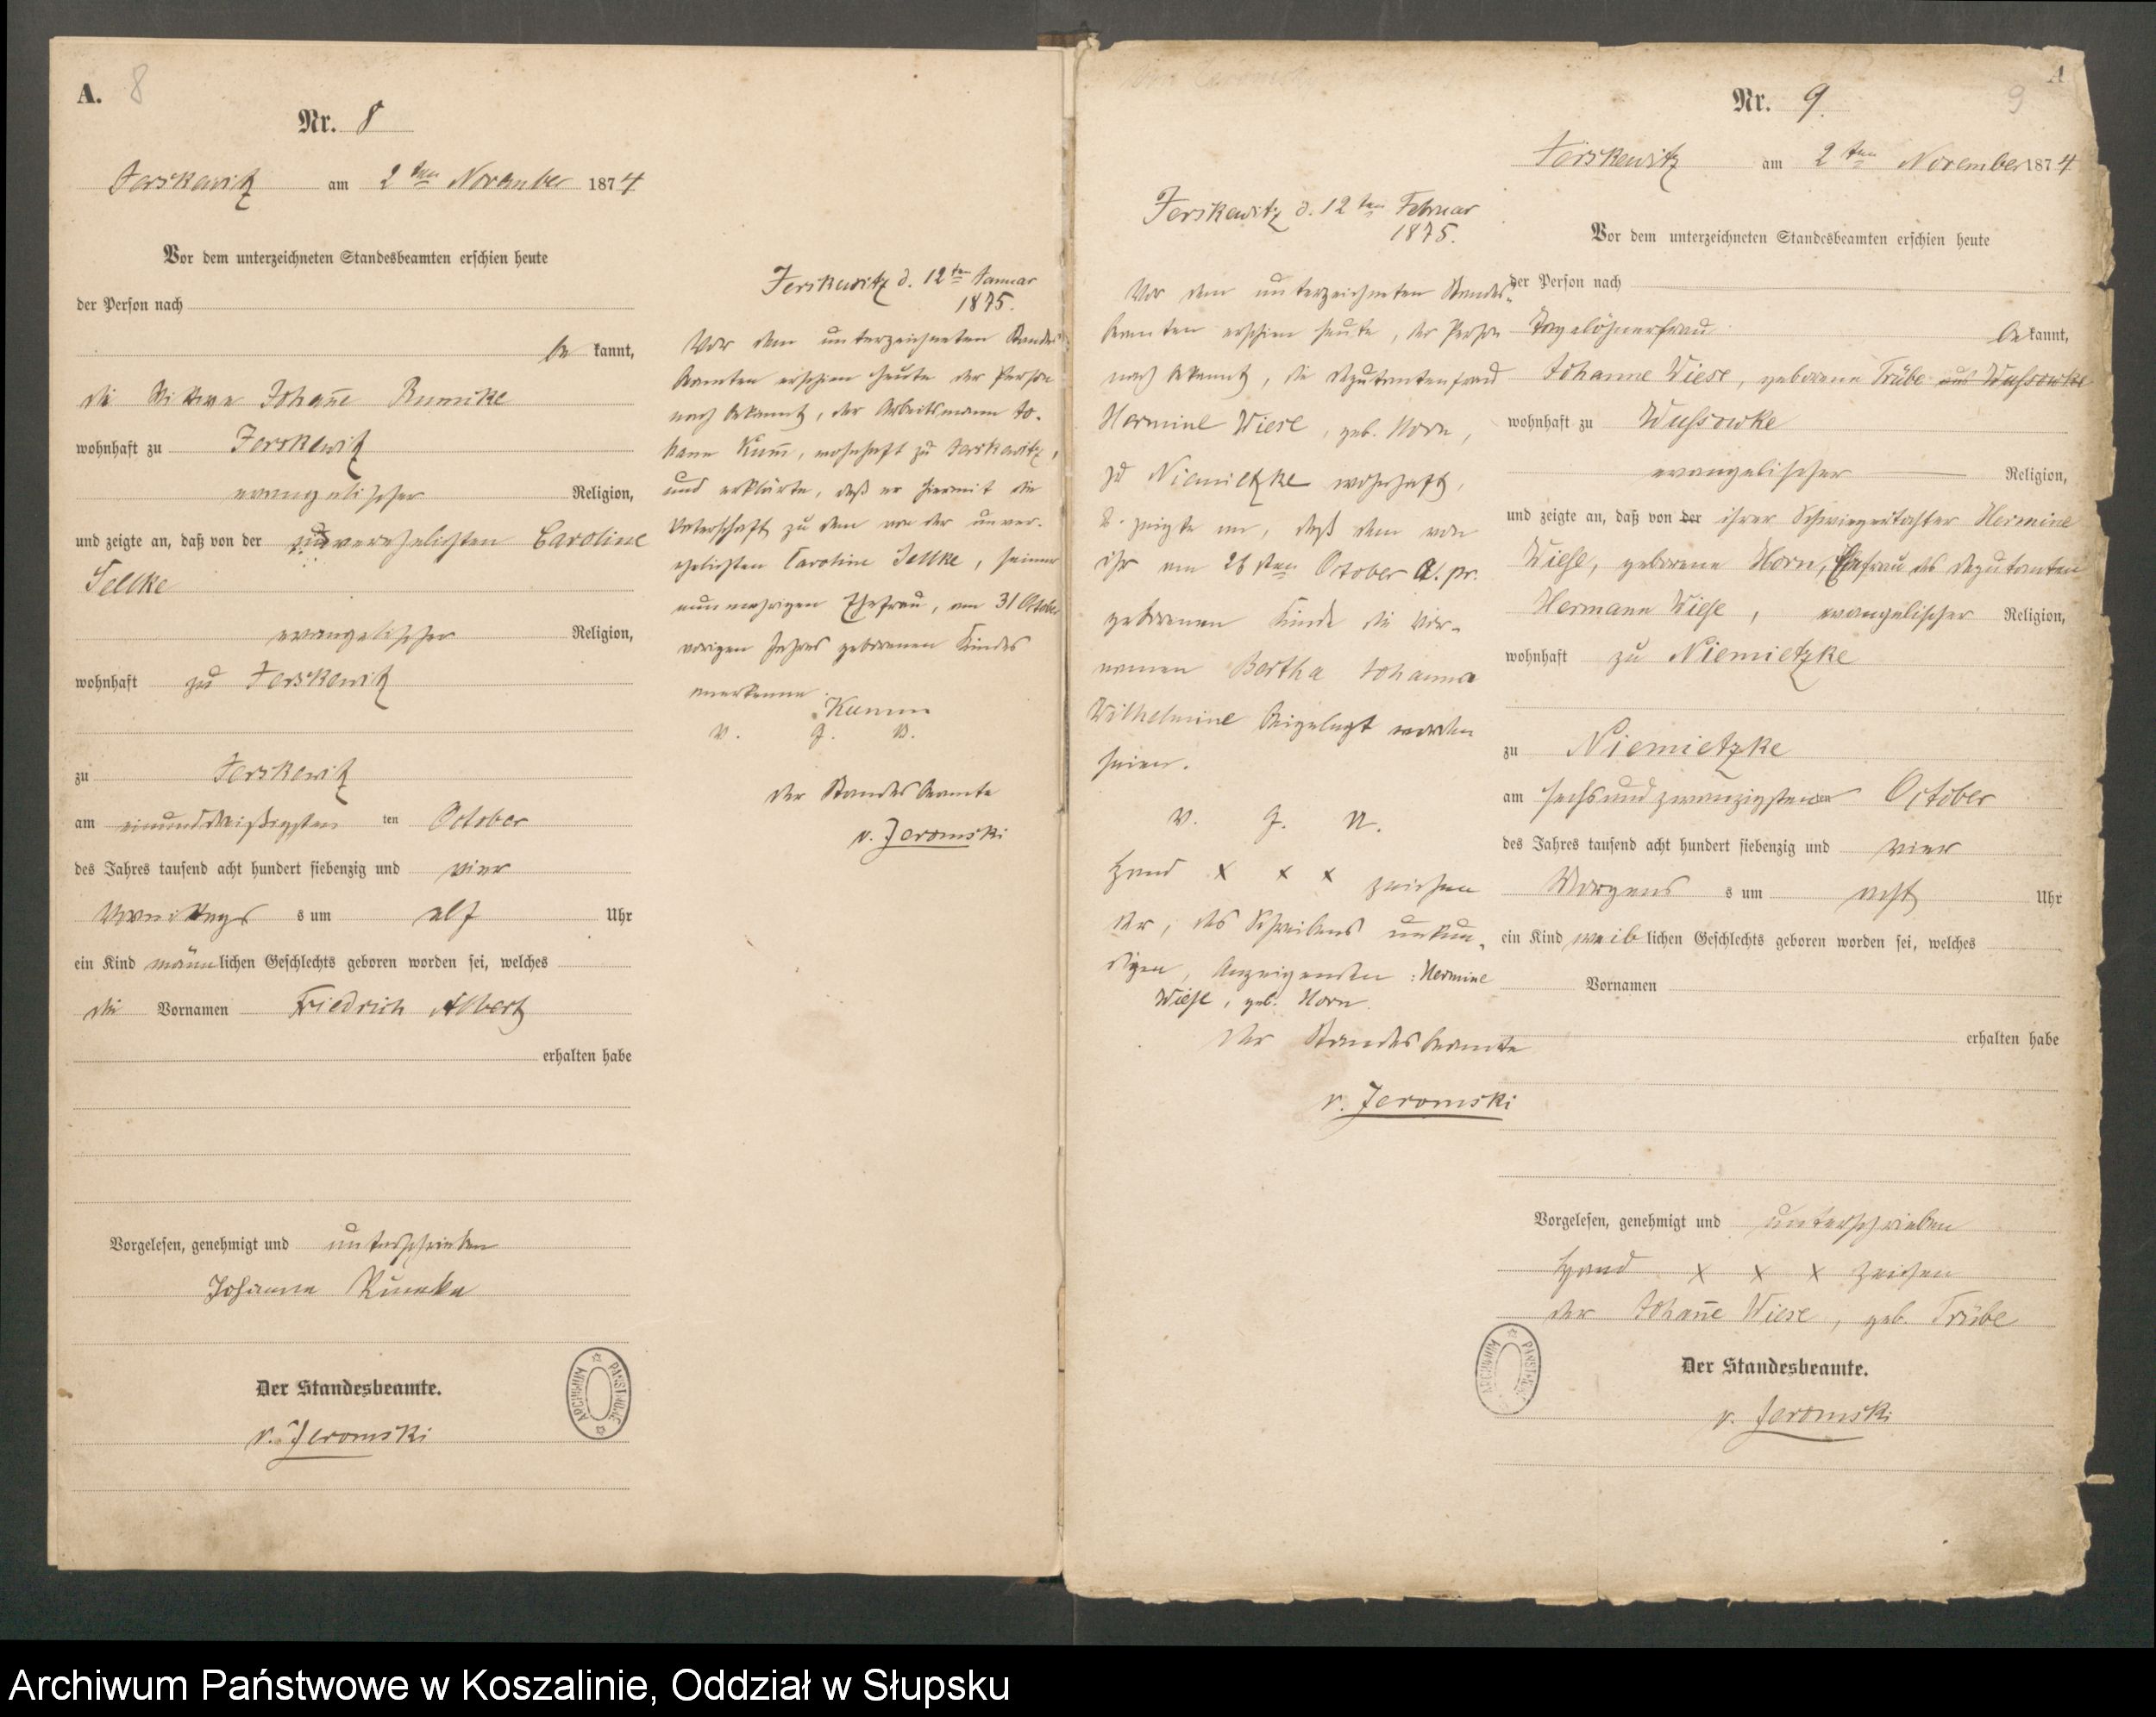 A. 8
Nr. 8
Jerskewitz am 2ten November 1874
Vor dem unterzeichneten Standesbeamten erschien heute
der Person nach
be kannt,
die Wittwe Johañe
wohnhaft zu Jerskewitz
evangelischer Religion,
und zeigte an, daß von der unverehelichten Caroline
Sellke
evangelischer Religion,
wohnhaft zu Jerskewitz
zu Jerskewitz
am einunddreißigsten ten October
des Jahres tausend acht hundert siebenzig und vier
Vormittags s um elf Uhr
ein Kind männlichen Geschlechts geboren worden sei, welches
die Vornamen Friedrich Albert
erhalten habe
Vorgelesen, genehmigt und unterschrieben
Johanna
Der Standesbeamte.
v. Jeromski
ARCHIWUM PAŃSTWOWE
Jerskewitz d. 12ten Januar
1875.
Vor dem unterzeichneten Standes
beamten erschien heute der Person
nach bekannt, der Arbeitsmann Jo-
hann Kum̄, wohnhaft zu Jerskewitz,
und erklärte, daß er hiermit die
Vaterschaft zu dem von der unver-
ehelichten Caroline Sellke, seiner
nunmehrigen Ehefrau, am 31 October
vorigen Jahres geborenen Kindes
anerkenne.
Kumm
V. g. u.
Der Standesbeamte
v. Jeromski
A
9
Nr. 9.
Jerskewitz am 2ten November 1874
Vor dem unterzeichneten Standesbeamten erschien heute
der Person nach
Tagelöhnerfrau bekannt,
Johanne Wiese, geborene Trübe aus Wussowke
wohnhaft zu Wussowke
evangelischer Religion,
und zeigte an, daß von der ihrer Schwiegertochter Hermine
Wiese, geborene Horn, Ehefrau des Deputanten
Hermann Wiese, evangelischer Religion,
wohnhaft zu Niemietzke
zu Niemietzke
am sechsundzwanzigsten ten October
des Jahres tausend acht hundert siebenzig und vier
Morgens s um acht Uhr
ein Kind weiblichen Geschlechts geboren worden sei, welches
Vornamen
erhalten habe
Vorgelesen, genehmigt und unterschrieben
Hand x x x zeichen
der Johañe Wiese, geb. Trübe
Der Standesbeamte.
v. Jeromski
ARCHIWUM PAŃSTWOWE
Jerskewitz d. 12ten Februar
1875.
Vor dem unterzeichneten Standes-
beamten erschien heute, der Person
nach bekannt, die Deputantenfrau
Hermine Wiese, geb. Horn,
zu Niemietzke wohnhaft,
u. zeigte an, daß dem von
ihr am 26sten October a. pr.
geborenen Kinde die Vor-
namen Bertha Johanna
Wilhelmine beigelegt worden
seien.
V. g. u.
Hand x x x zeichen
der, des Schreibens unkun-
digen, Anzeigenden: Hermine
Wiese, geb. Horn.
Der Standesbeamte
v. Jeromski
Archiwum Państwowe w Koszalinie, Oddział w Słupsku